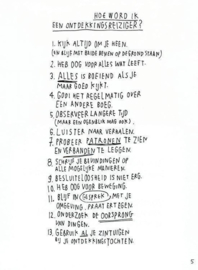 HOE WORD IK
EEN ONTDEKKINGSREIZIGER?
1. KIJK ALTIJD OM JE HEEN.
(EN BLIJF MET BEIDE BENEN OP DE GROND STAAN)
2. HEB OOG VOOR ALLES WAT LEEFT.
3. ALLES IS BOEIEND ALS JE
MAAR GOED KIJKT.
4. GOOI HET REGELMATIG OVER
EEN ANDERE BOEG.
5. OBSERVEER LANGERE TIJD
(MAAR EEN OGENBLIK MAG OOK).
6. LUISTER NAAR VERHALEN.
7. PROBEER PATRONEN TE ZIEN
EN VERBANDEN TE LEGGEN.
8. SCHRIJF JE BEVINDINGEN OP
ALLE MOGELIJKE MANIEREN.
9. BESLUITELOOSHEID IS NIET ERG.
10. HEB OOG VOOR BEWEGING.
11. BLIJF IN GESPREK MET JE
OMGEVING. PRAAT ERTEGEN.
12. ONDERZOEK DE OORSPRONG
VAN DINGEN.
13. GEBRUIK AL JE ZINTUIGEN
BIJ JE ONTDEKKINGSTOCHTEN.
5